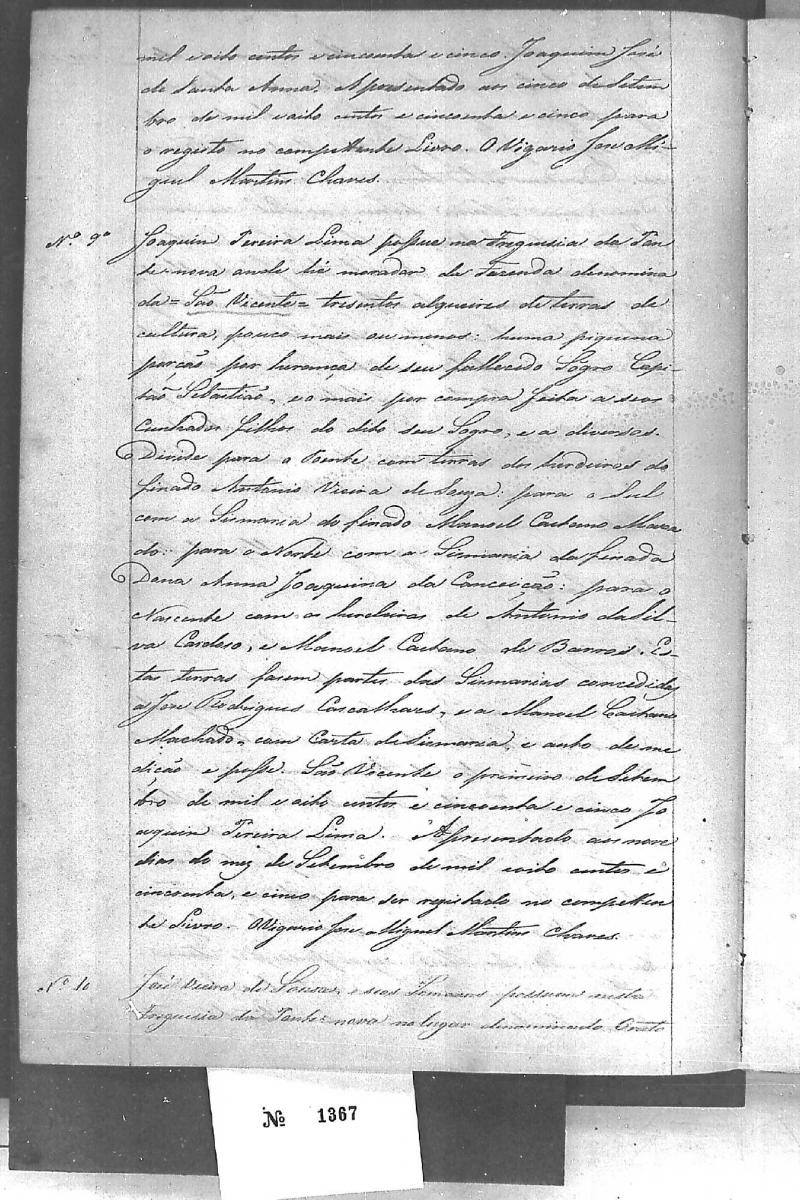 mil e oito centos e cincoenta e cinco. Joaquim José
de Santa Anna. Apresentado aos cinco de Setem
bro de mil e oito centos e cincoenta e cinco para
o registo no compettente Livro. O Vigario Jose Mi-
guel Martins Chaves.
Nº 9º Joaquim Pereira Lima possue na Freguesia da Pon
te-nova aonde hé morador da Fazenda denomina
da = São Vicente = tresentos alqueires de terras de
cultura, pouco mais ou menos: huma piquena
porcão por herança de seu fallecido Sogro Capi-
tão Sebastião, e o mais por compra feita a seos
Cunhados filhos do dito seu Sogro, e a diversos.
Divide para o Poente com terras dos herdeiros do
finado Antonio Vieira de Souza: para o Sul
com a Sismaria do finado Manoel Caetano Maxa
do: para o Norte com a Sismaria da finada
Dona Anna Joaquina da Conceicão: para o
Nascente com os herdeiros de Antonio da Sil-
va Cardoso, e Manoel Caetano de Barros. Es-
tas terras fasem partes das Sismarias concedidas
a Jose Rodrigues Cascalhares, e a Manoel Caetano
Machado, com Carta de Sismaria, e auto de me
dição e posse. São Vicente o primeiro de Setem
bro de mil e oito centos e cincoenta e cinco Jo
aquim Pereira Lima. Apresentado aos nove
dias do mez de Setembro de mil e oito centos e
cincoenta, e cinco para ser registado no competten
te Livro. O Vigario Jose Miguel Martins Chaves.
Nº 10 José Vieira de Sousa, e seos Irmaons possuem nesta
Freguesia da Ponte-nova no lugar denominado
Nº 1367